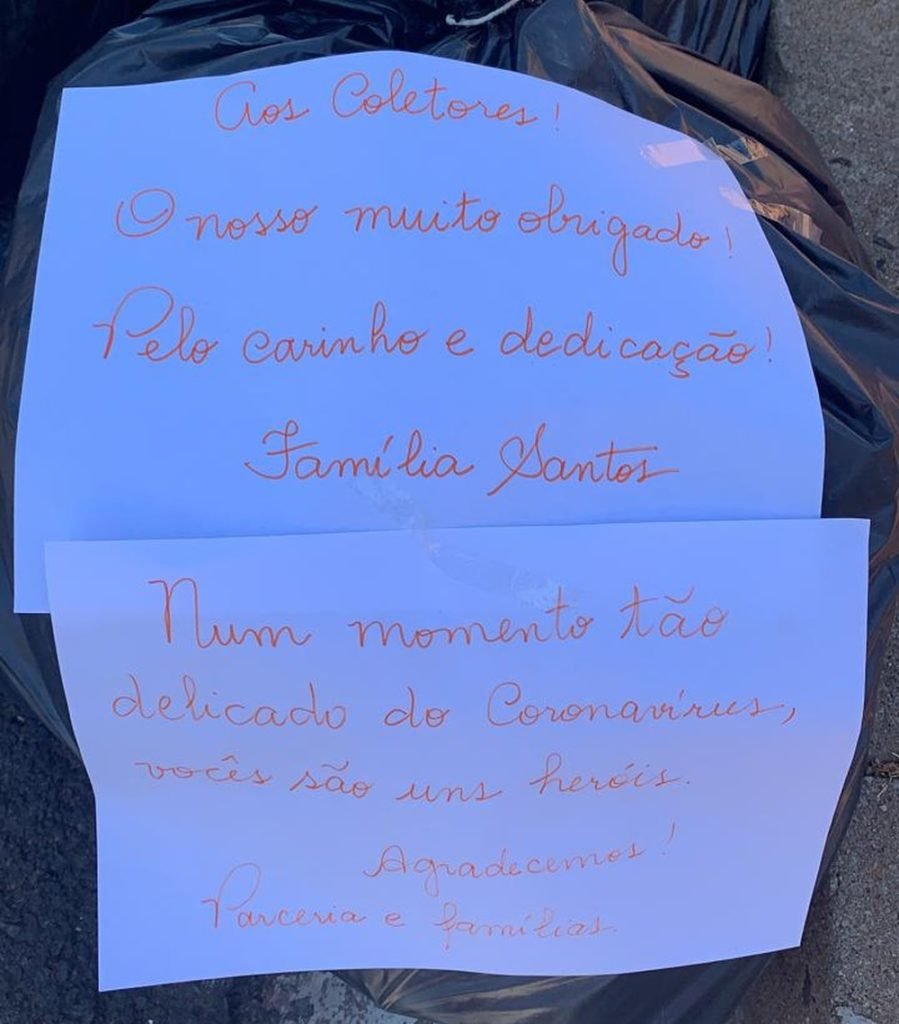 Aos Coletores!
O nosso muito obrigado!
Pelo carinho e dedicação!
Família Santos
Num momento tão
delicado do Coronavírus,
vocês são uns heróis.
Agradecemos!
Parceria e famílias.